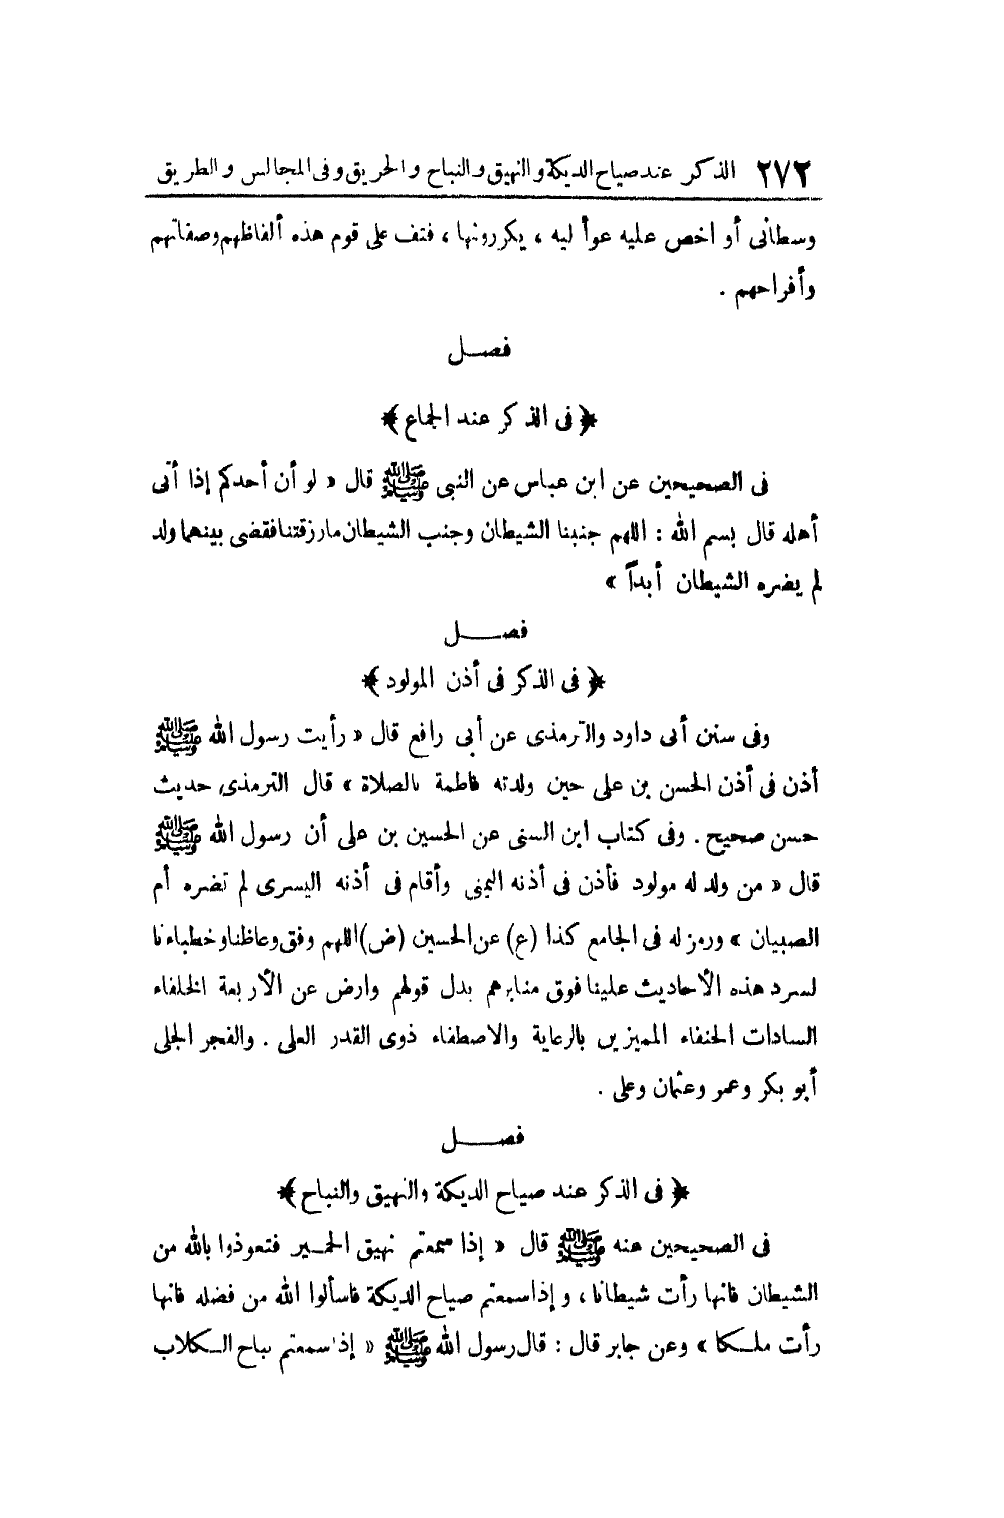 ٢٧٢ الذكر عند صياح الديكة والنهيق والنباح والحريق وفى المجالس والطريق
وسطانى أو اخص عليه عوأ ليه ، يكررونها ، فتف على قوم هذه ألفاظهم وصفاتهم
وأفراحهم .
فصل
﴿ فى الذكر عند الجماع ﴾
فى الصحيحين عن ابن عباس عن النبى ﷺ قال « لو أن أحدكم إذا أتى
أهله قال بسم الله : اللهم جنبنا الشيطان وجنب الشيطان مارزقتنا فقضى بينهما ولد
لم يضره الشيطان أبداً »
فصل
﴿ فى الذكر فى أذن المولود ﴾
وفى سنن أبى داود والترمذى عن أبى رافع قال « رأيت رسول الله ﷺ
أذن فى أذن الحسن بن على حين ولدته فاطمة بالصلاة » قال الترمذى حديث
حسن صحيح . وفى كتاب ابن السنى عن الحسين بن على أن رسول الله ﷺ
قال « من ولد له مولود فأذن فى أذنه اليمنى وأقام فى أذنه اليسرى لم تضره أم
الصبيان » ورمز له فى الجامع كذا (ع) عن الحسين (ض) اللهم وفق وعاظنا وخطباءنا
لسرد هذه الأحاديث علينا فوق منابرهم بدل قولهم وارض عن الأربعة الخلفاء
السادات الحنفاء المميزين بالرعاية والاصطفاء ذوى القدر العلى . والفجر الجلى
أبو بكر وعمر وعثمان وعلى .
فصل
﴿ فى الذكر عند صياح الديكة والنهيق والنباح ﴾
فى الصحيحين عنه ﷺ قال « إذا سمعتم نهيق الحمير فتعوذوا بالله من
الشيطان فانها رأت شيطانا ، وإذا سمعتم صياح الديكة فاسألوا الله من فضله فانها
رأت ملكا » وعن جابر قال : قال رسول الله ﷺ « إذا سمعتم نباح الكلاب